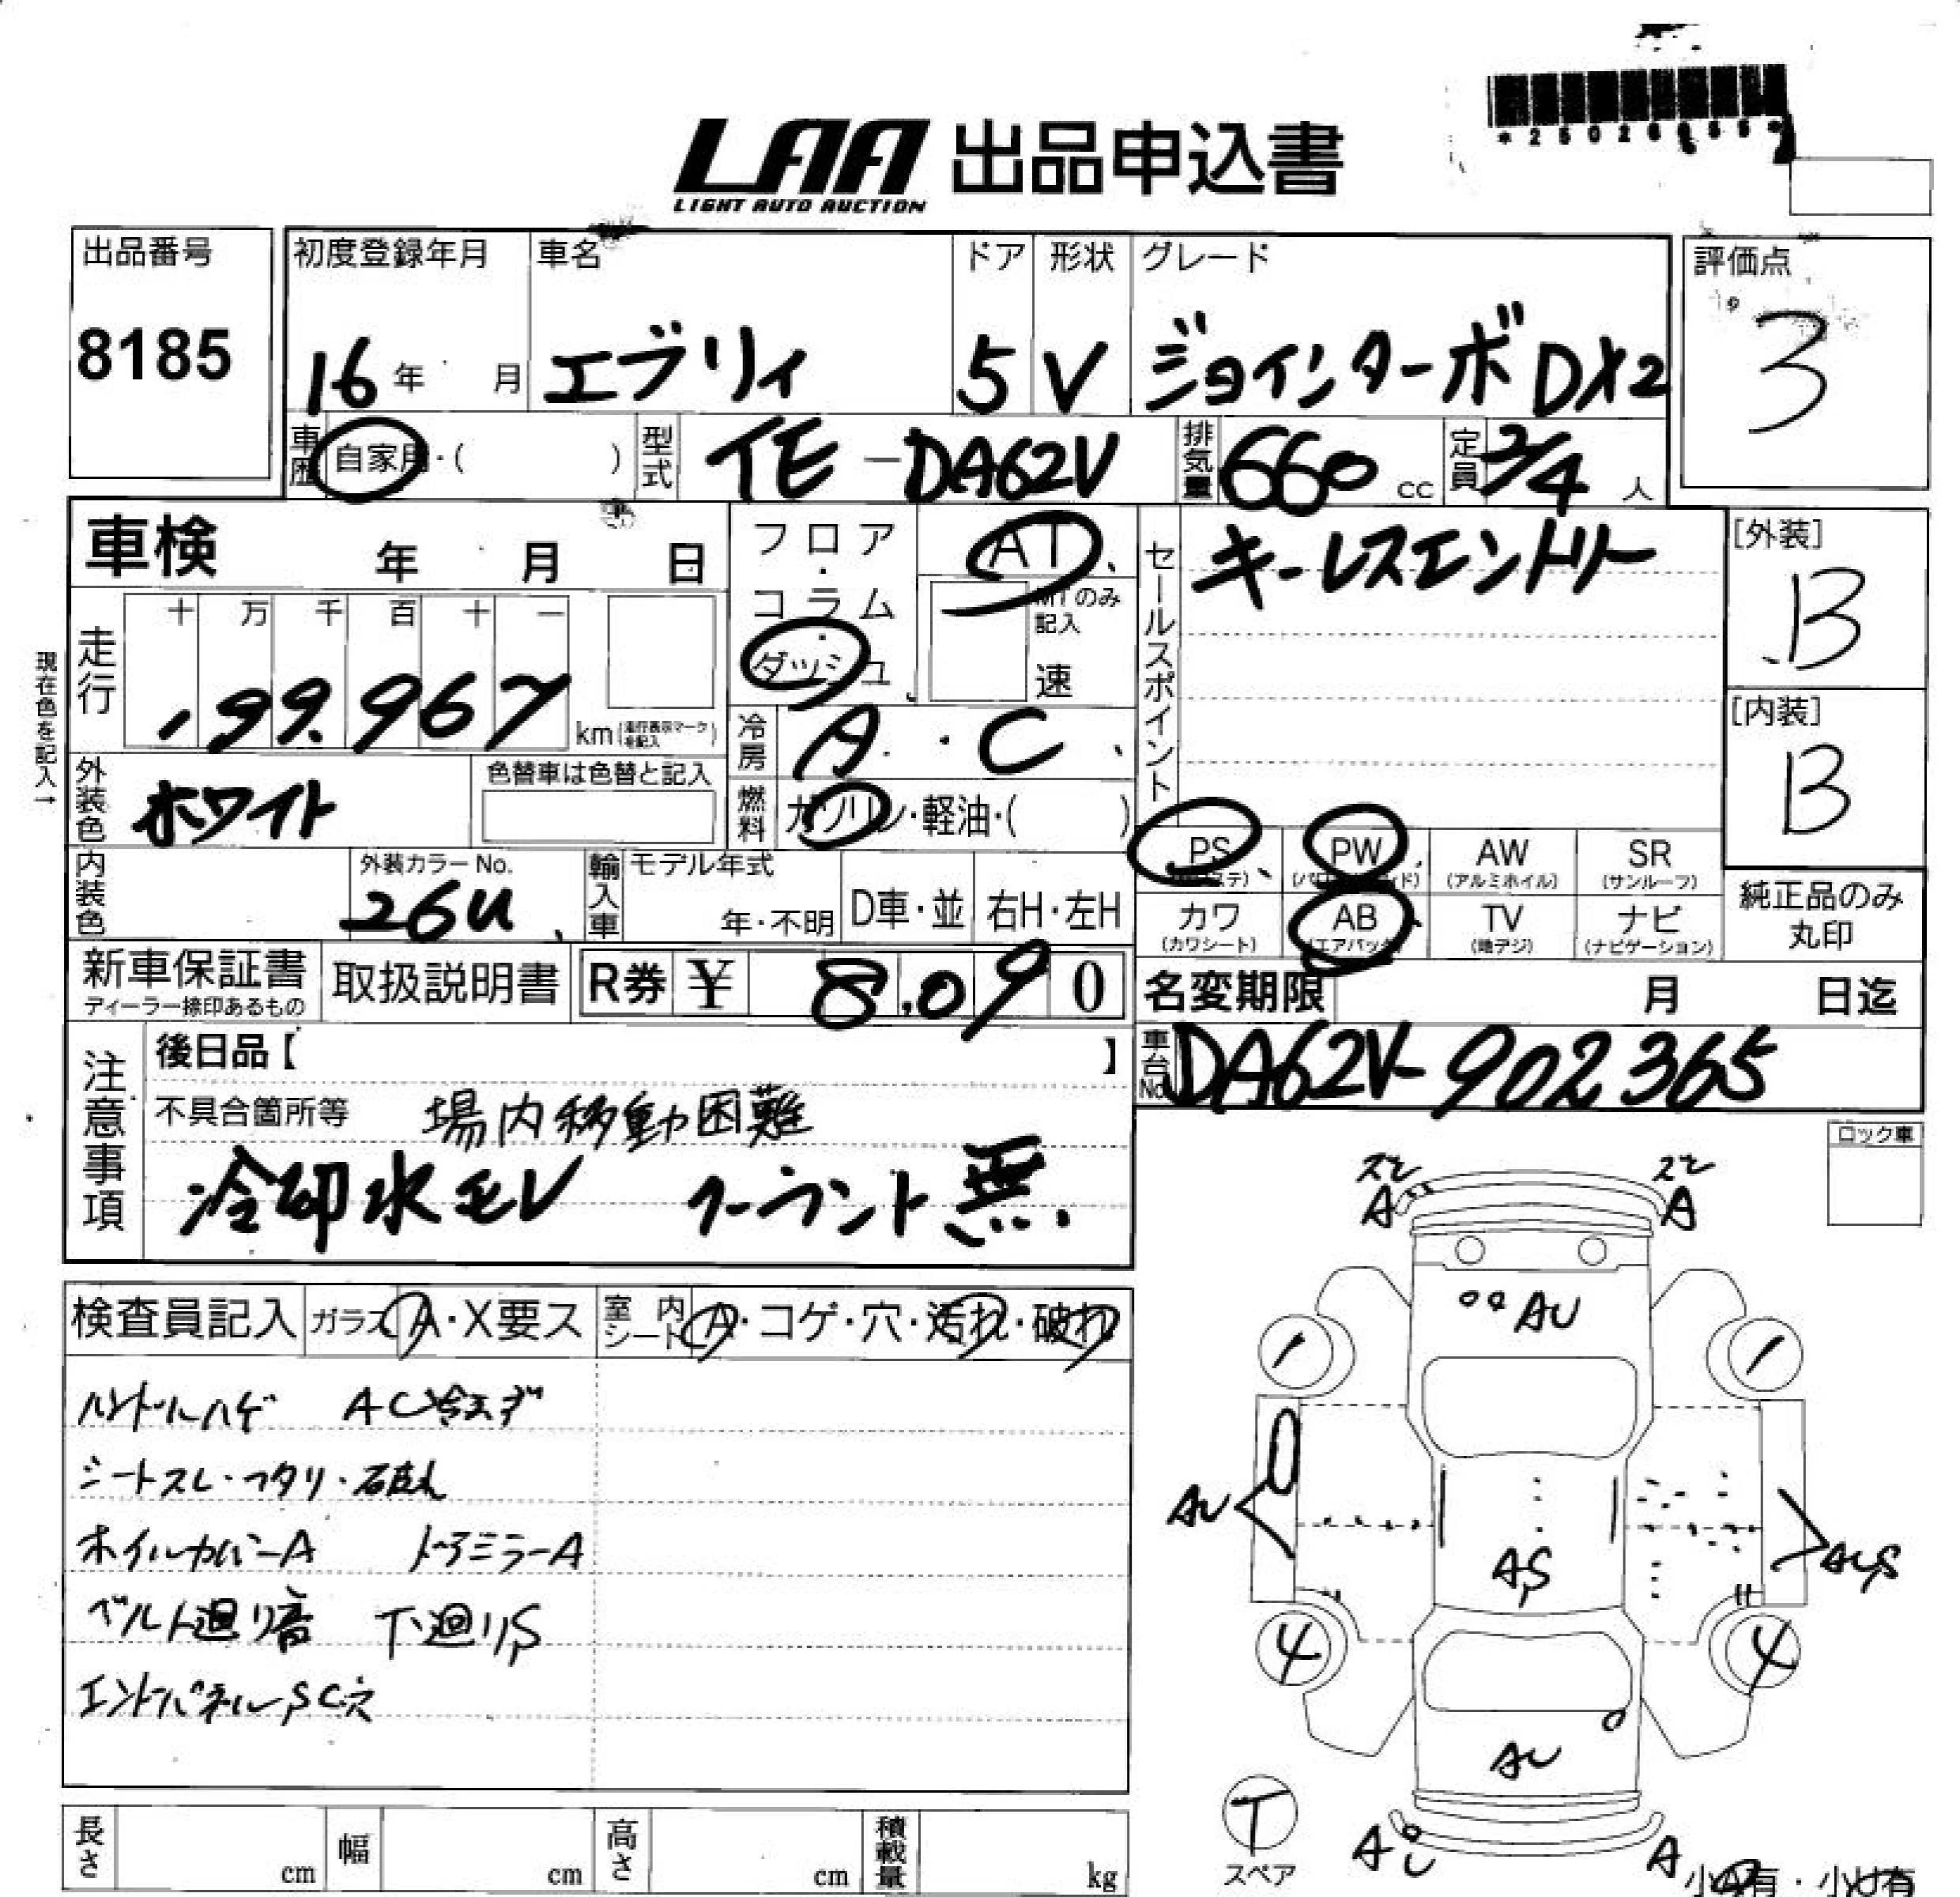 LAA 出品申込書
LIGHT AUTO AUCTION
出品番号
8185
初度登録年月 車名 ドア 形状 グレード
16年 月 エブリィ 5 V ジョインターボDX2
評価点
3
車歴 自家用・( ) 型式 TE-DA62V 排気量 660 cc 定員 2/4 人
車検 年 月 日
フロア・コラム・ダッシュ
AT
MTのみ記入
速
セールスポイント
キーレスエントリー
[外装]
B
現在色を記入→
走行
十 万 千 百 十 一
99.967 km
冷房 A・C
[内装]
B
外装色 ホワイト
色替車は色替と記入
燃料 ガソリン・軽油・( )
PS PW
(パワステ) (パワーウィンド)
AW SR
(アルミホイル) (サンルーフ)
内装色
外装カラーNo.
26U
輸入車 モデル年式
年・不明 D車・並 右H・左H
カワ AB TV ナビ
(カワシート) (エアバック) (地デジ) (ナビゲーション)
純正品のみ
丸印
新車保証書
ディーラー捺印あるもの
取扱説明書
R券 ¥ 8.090
名変期限 月 日迄
注意事項
後日品【 】
車台No. DA62V-902365
不具合箇所等 場内移動困難
冷却水モレ クーラント無
ロック車
検査員記入 ガラス A・X要ス 室内シート A・コゲ・穴・汚れ・破れ
ハンドルハゲ AC冷えず
シートスレ・ヘタリ・破れ
ホイルカバーA ドアミラーA
ベルト廻り音 下廻りS
エンドパネルSC穴
A A
AU
1 1
AU
AS
AUS
4 4
AU
T
スペア
A A
小A有・小U有
長さ cm 幅 cm 高さ cm 積載量 kg